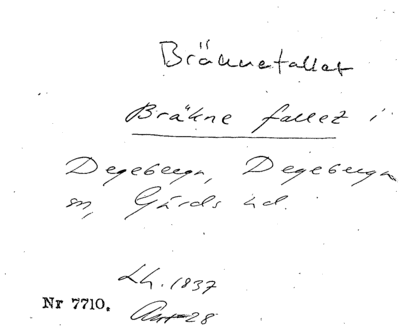 Bräknefallet
Bräkne fallet i
Degeberga, Degeberga
sn, Gärds hd.
Lh. 1837
Nr 7710.
28